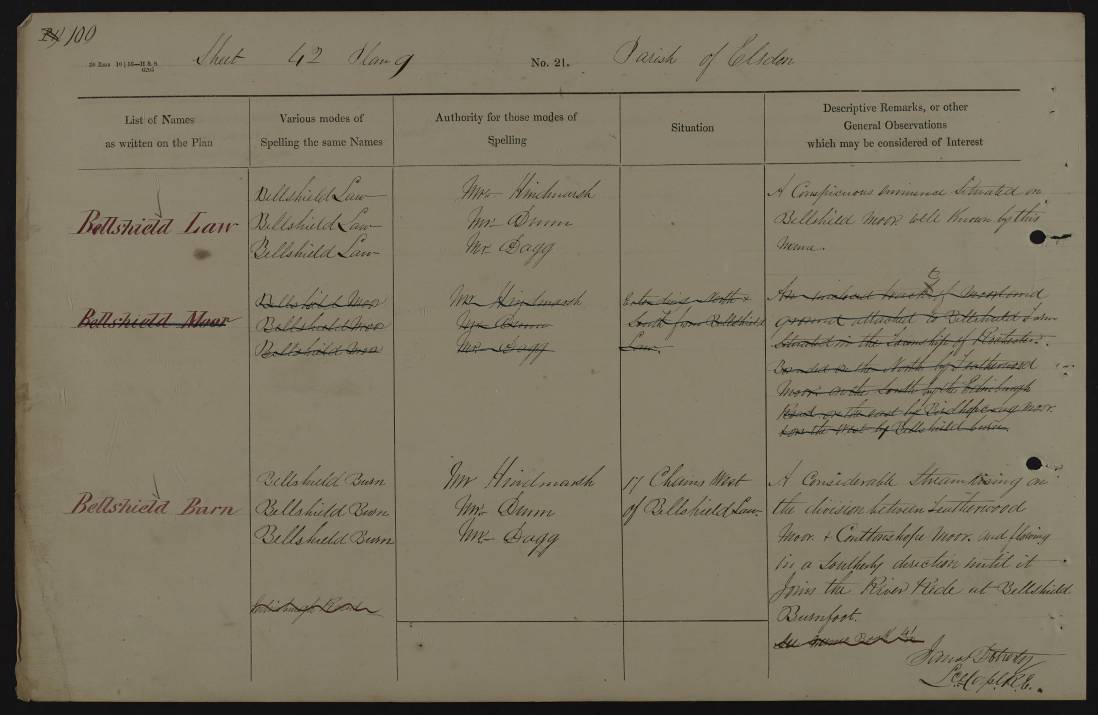 109
Sheet 42 Plan 9
No. 21.
Parish of Elsdon
List of Names
as written on the Plan
Various modes of
Spelling the same Names
Authority for those modes of
Spelling
Situation
Descriptive Remarks, or other
General Observations
which may be considered of Interest
Bellshield Law
Bellshield Law
Bellshield Law
Bellshield Law
Mr. Hindmarsh
Mr. Dunn
Mr. Dagg
A Conspicuous eminence Situated on
Bellshield Moor. well Known by this
Name.
Bellshield Moor
Bellshield Moor
Bellshield Moor
Bellshield Moor
Mr. Hindmarsh
Mr. Dunn
Mr. Dagg
Extending North &
South from Bellshield
Law.
of Moorland
ground attached to Bellshield Farm
Situated in the Township of Rochester.
Bounded on the North by Featherwood
Moor on the South by the Edinburgh
Road on the east by Birdhopecraig Moor.
& on the West by Bellshield burn.
Bellshield Burn
Bellshield Burn
Bellshield Burn
Bellshield Burn
Mr Hindmarsh
Mr. Dunn
Mr. Dagg
17 Chains West
of Bellshield Law.
A Considerable Stream rising on
the division between Featherwood
Moor. & Cottonshope Moor. and flowing
in a Southerly direction until it
Joins the River Rede at Bellshield
Burnfoot.
See Name Book